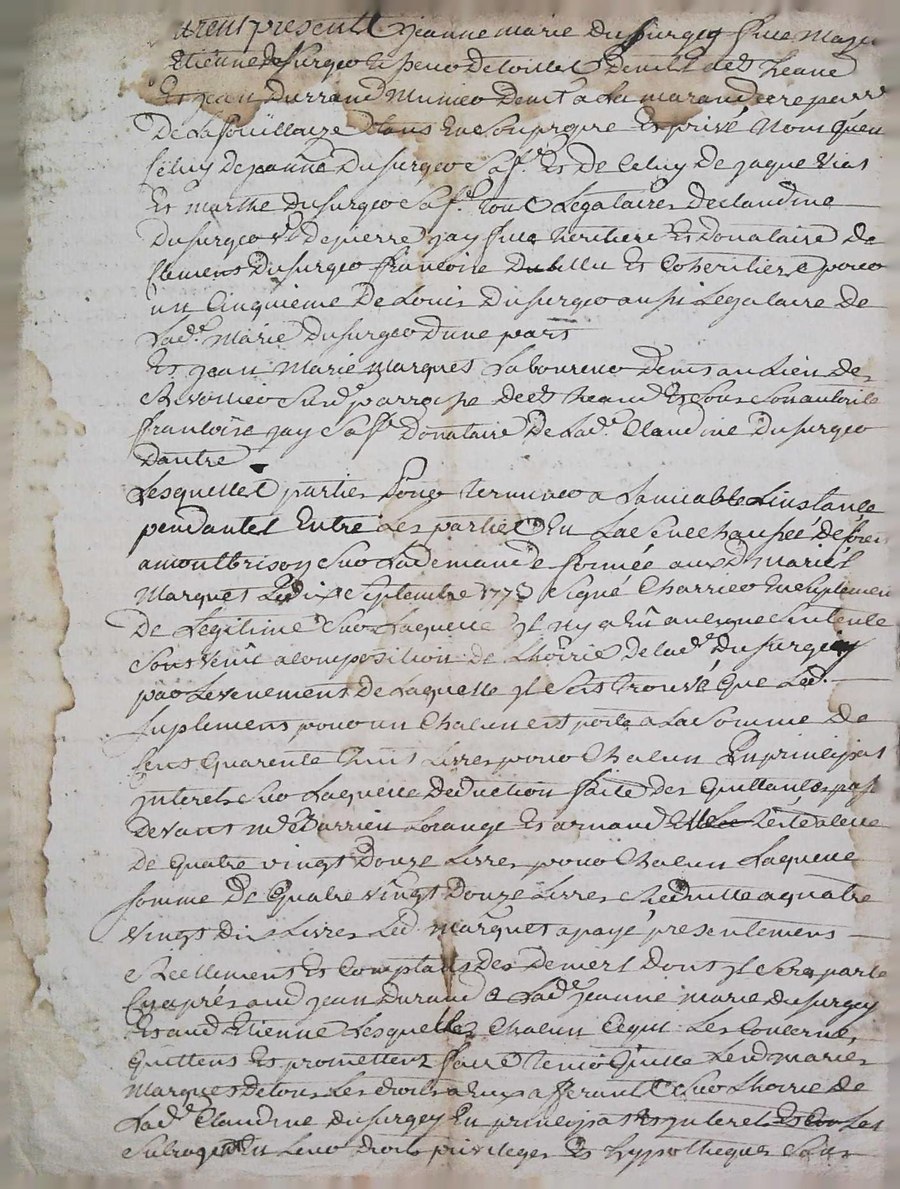 present Jeanne marie Dusurgey fille
Etienne Dusurgey
Et jean Durrand Munier Demt a La
De La foüillouze tans En Son propre Et privé Nom Qu'en
Celuy De jeanne Dusurgey Sa fe. Et De Celuy De jaque Vial
Et marthe Dusurgey Sa fe. tous Legataires De claudine
Dusurgey Et De pierre jay fils heritier Et Donataire De
Clemens Dusurgey francoise Et Coheritiere pour
un Cinquieme De Louis Dusurgey aussi Legataire De
Lade. Marie Dusurgey D'une part
Et jean Marie Marques Laboureur Demt au Lieu De
Sur parroisse De heand Et Sous Son autorité
francoise jay Sa fe. Donataire De Lade. Claudine Dusurgey
Dautre
Lesquelles parties Pour terminer a Lamiable Linstance
pendantes Entre Les parties En La Senechaussée De forez
a montbrison Sur La demande formée aux d. mariés
Marques Le dix Septembre 1773 Signé Charrier En Suplement
De Legitime Sur Laquelle jl ny a Eû aucque Sentence
Sont venû a Composition De Lhoirie De lade. Dusurgey
par Levenement De Laquelle jl Sest trouvé Que Led.
Suplement pour un Chacun est porté a La Somme De
Cent Quarente huit Livres pour Chacun En principal
jnterets Sur Laquelle deduction faite des Quittances
Devant me. Et arnaud
De Quatre vingt Douze Livres pour Chacun Laquelle
Somme De Quatre vingt Douze Livres Reduitte a quatre
vingt Dix Livres Led. Marques a payé presentement
Reellement Et Comptant Des Deniers Dont jl Sera parlé
Cy après aud jean Durand a Lade. jeanne marie Dusurgey
Et aud Etienne Lesquelles Chacun Ce qui Les Concerne,
Quittent Et promettent faire tenir Quitte Lesd mariés
Marques De tous Les droits a Eux afferants Sur Lhoirie De
Lade. Claudine Dusurgey En principal jnterets Et Les
Subrogent En Leur Droits privileges Et hypotheques Sans